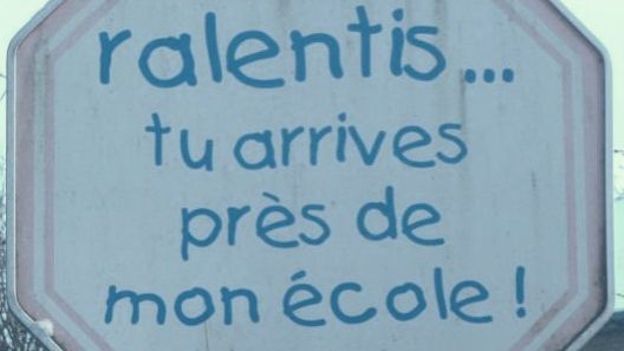 ralentis...
tu arrives
près de
mon école !